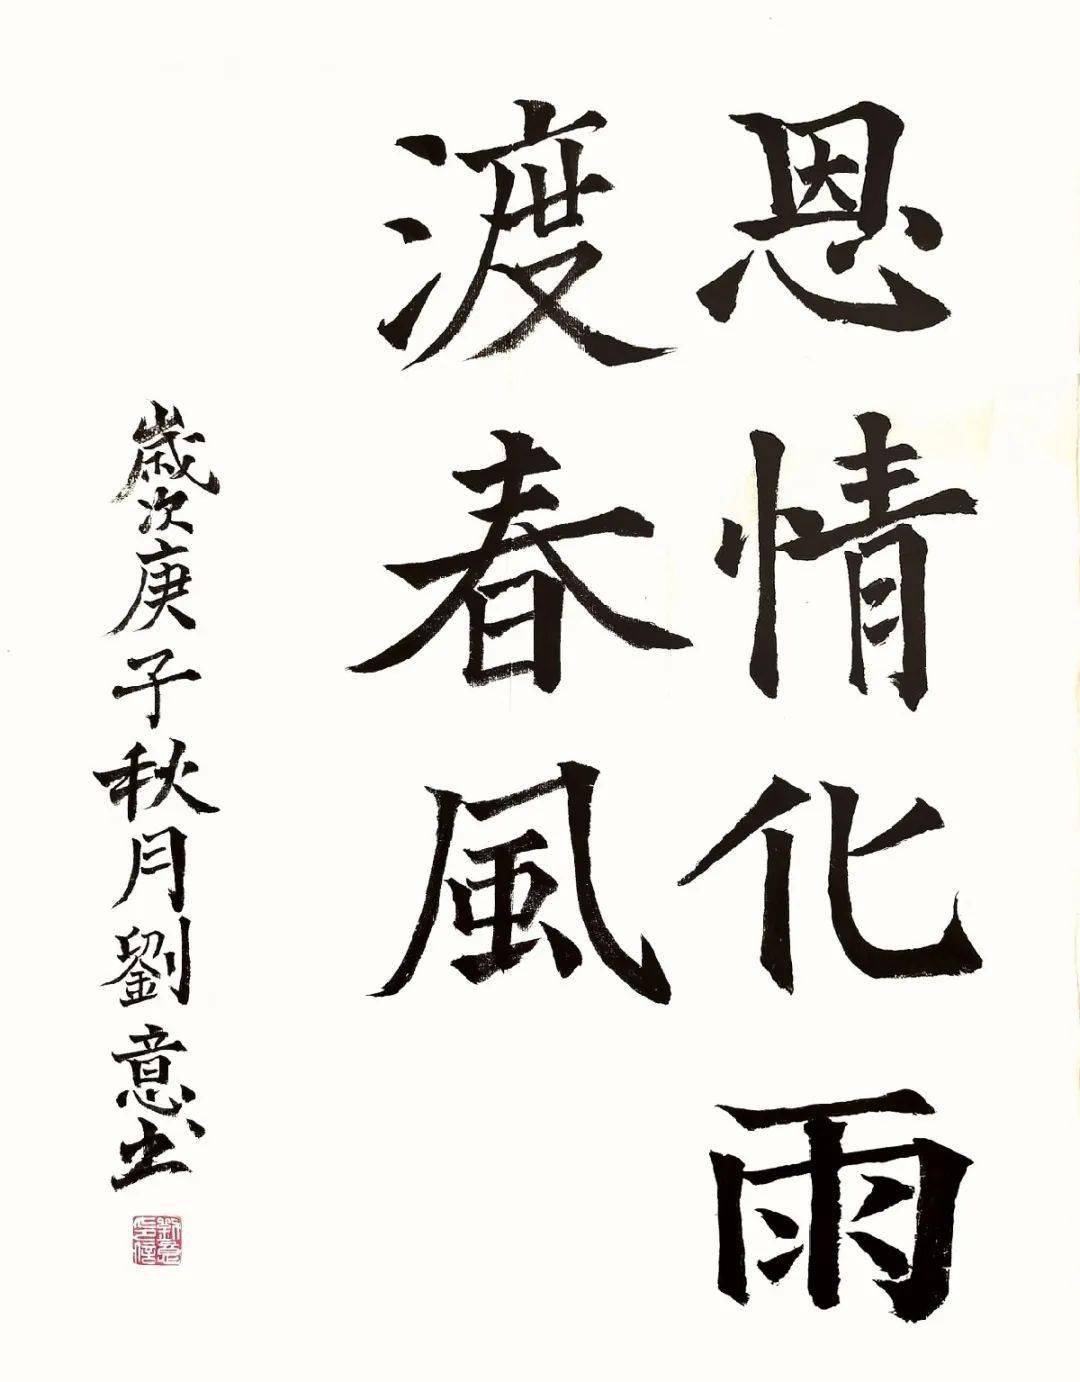 恩情化雨
渡春風
歲次庚子秋月劉意书